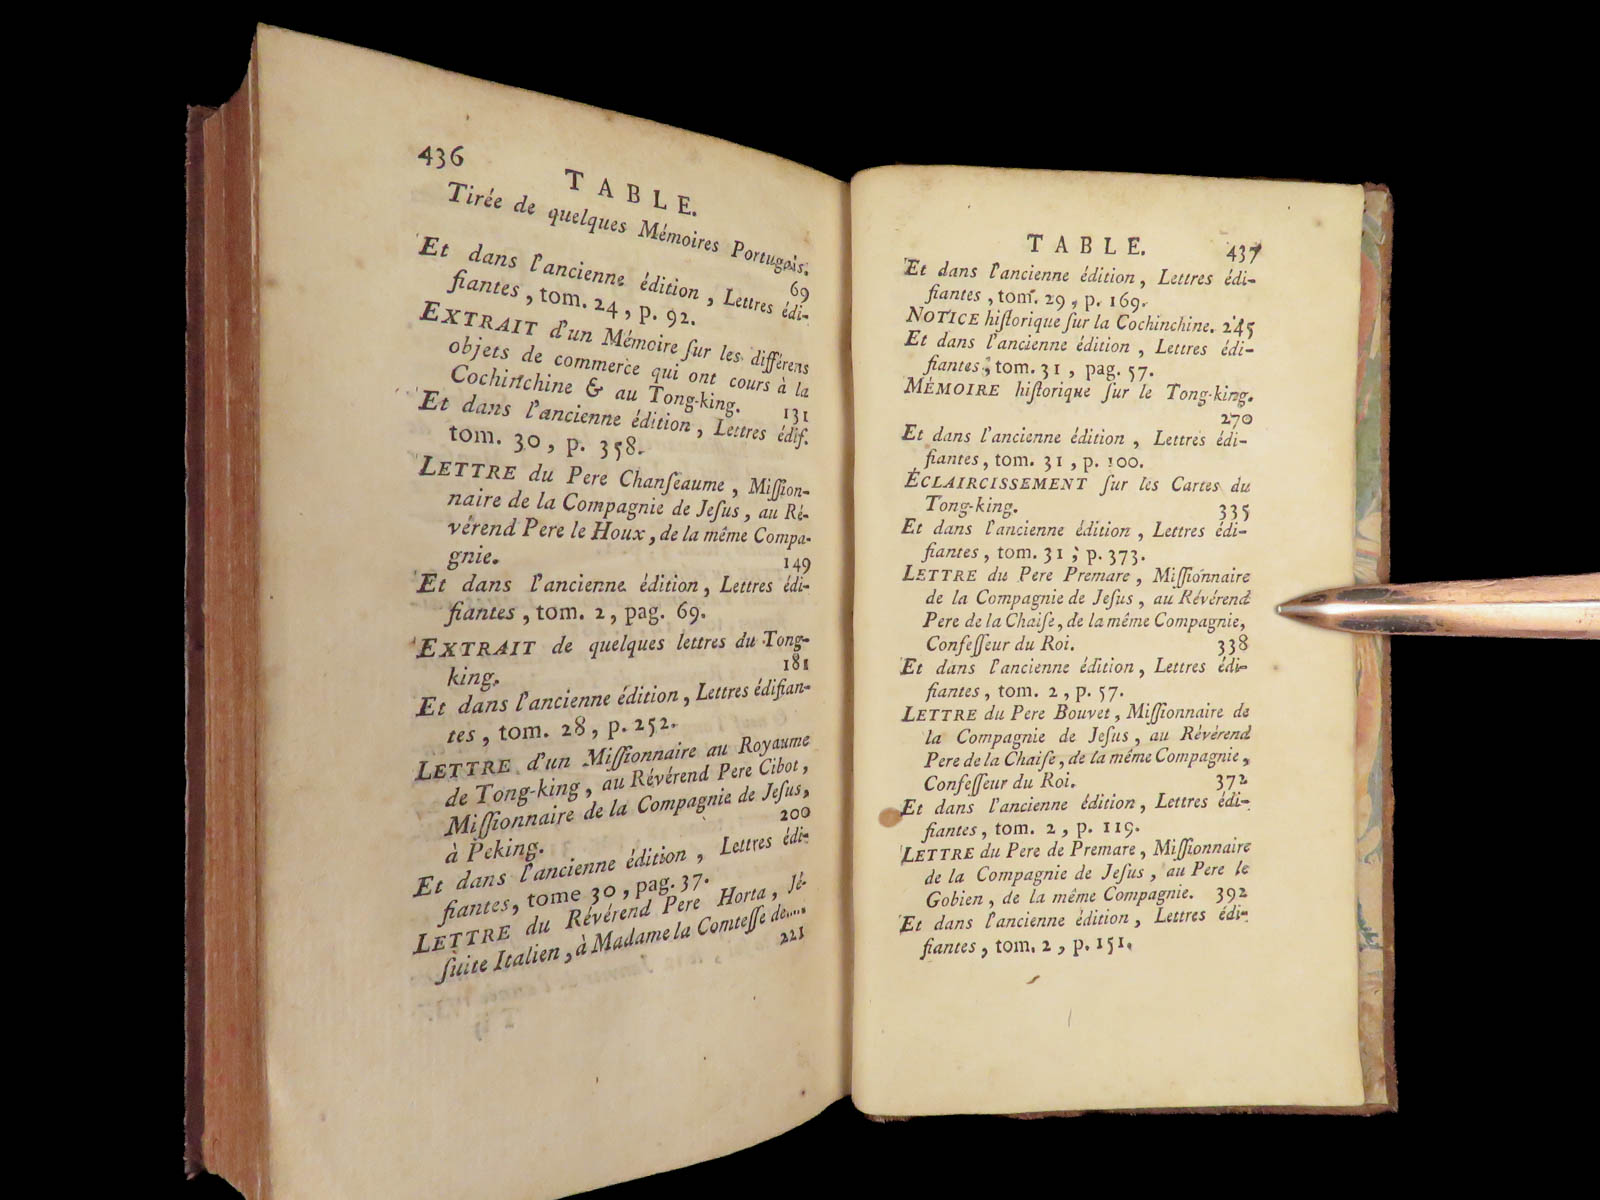 436
TABLE.
Tirée de quelques Mémoires Portugais.
69
Et dans l'ancienne édition, Lettres édi-
fiantes, tom. 24, p. 92.
EXTRAIT d'un Mémoire ſur les différens
objets de commerce qui ont cours à la
Cochinchine & au Tong-king. 131
Et dans l'ancienne édition, Lettres édif.
tom. 30, p. 358.
LETTRE du Pere Chanſeaume, Miſſion-
naire de la Compagnie de Jeſus, au Ré-
vérend Pere le Houx, de la même Compa-
gnie. 149
Et dans l'ancienne édition, Lettres édi-
fiantes, tom. 2, pag. 69.
EXTRAIT de quelques lettres du Tong-
king. 181
Et dans l'ancienne édition, Lettres édifian-
tes, tom. 28, p. 252.
LETTRE d'un Miſſionnaire au Royaume
de Tong-king, au Révérend Pere Cibot,
Miſſionnaire de la Compagnie de Jeſus,
à Peking. 200
Et dans l'ancienne édition, Lettres édi-
fiantes, tome 30, pag. 37.
LETTRE du Révérend Pere Horta, Jé-
ſuite Italien, à Madame la Comteſſe de....
221
TABLE. 437
Et dans l'ancienne édition, Lettres édi-
fiantes, tom. 29, p. 169.
NOTICE hiſtorique ſur la Cochinchine. 245
Et dans l'ancienne édition, Lettres édi-
fiantes, tom. 31, pag. 57.
MÉMOIRE hiſtorique ſur le Tong-king.
270
Et dans l'ancienne édition, Lettres édi-
fiantes, tom. 31, p. 100.
ÉCLAIRCISSEMENT ſur les Cartes du
Tong-king. 335
Et dans l'ancienne édition, Lettres édi-
fiantes, tom. 31, p. 373.
LETTRE du Pere Premare, Miſſionnaire
de la Compagnie de Jeſus, au Révérend
Pere de la Chaiſe, de la même Compagnie,
Confeſſeur du Roi. 338
Et dans l'ancienne édition, Lettres édi-
fiantes, tom. 2, p. 57.
LETTRE du Pere Bouvet, Miſſionnaire de
la Compagnie de Jeſus, au Révérend
Pere de la Chaiſe, de la même Compagnie,
Confeſſeur du Roi. 372
Et dans l'ancienne édition, Lettres édi-
fiantes, tom. 2, p. 119.
LETTRE du Pere de Premare, Miſſionnaire
de la Compagnie de Jeſus, au Pere le
Gobien, de la même Compagnie. 392
Et dans l'ancienne édition, Lettres édi-
fiantes, tom. 2, p. 151.